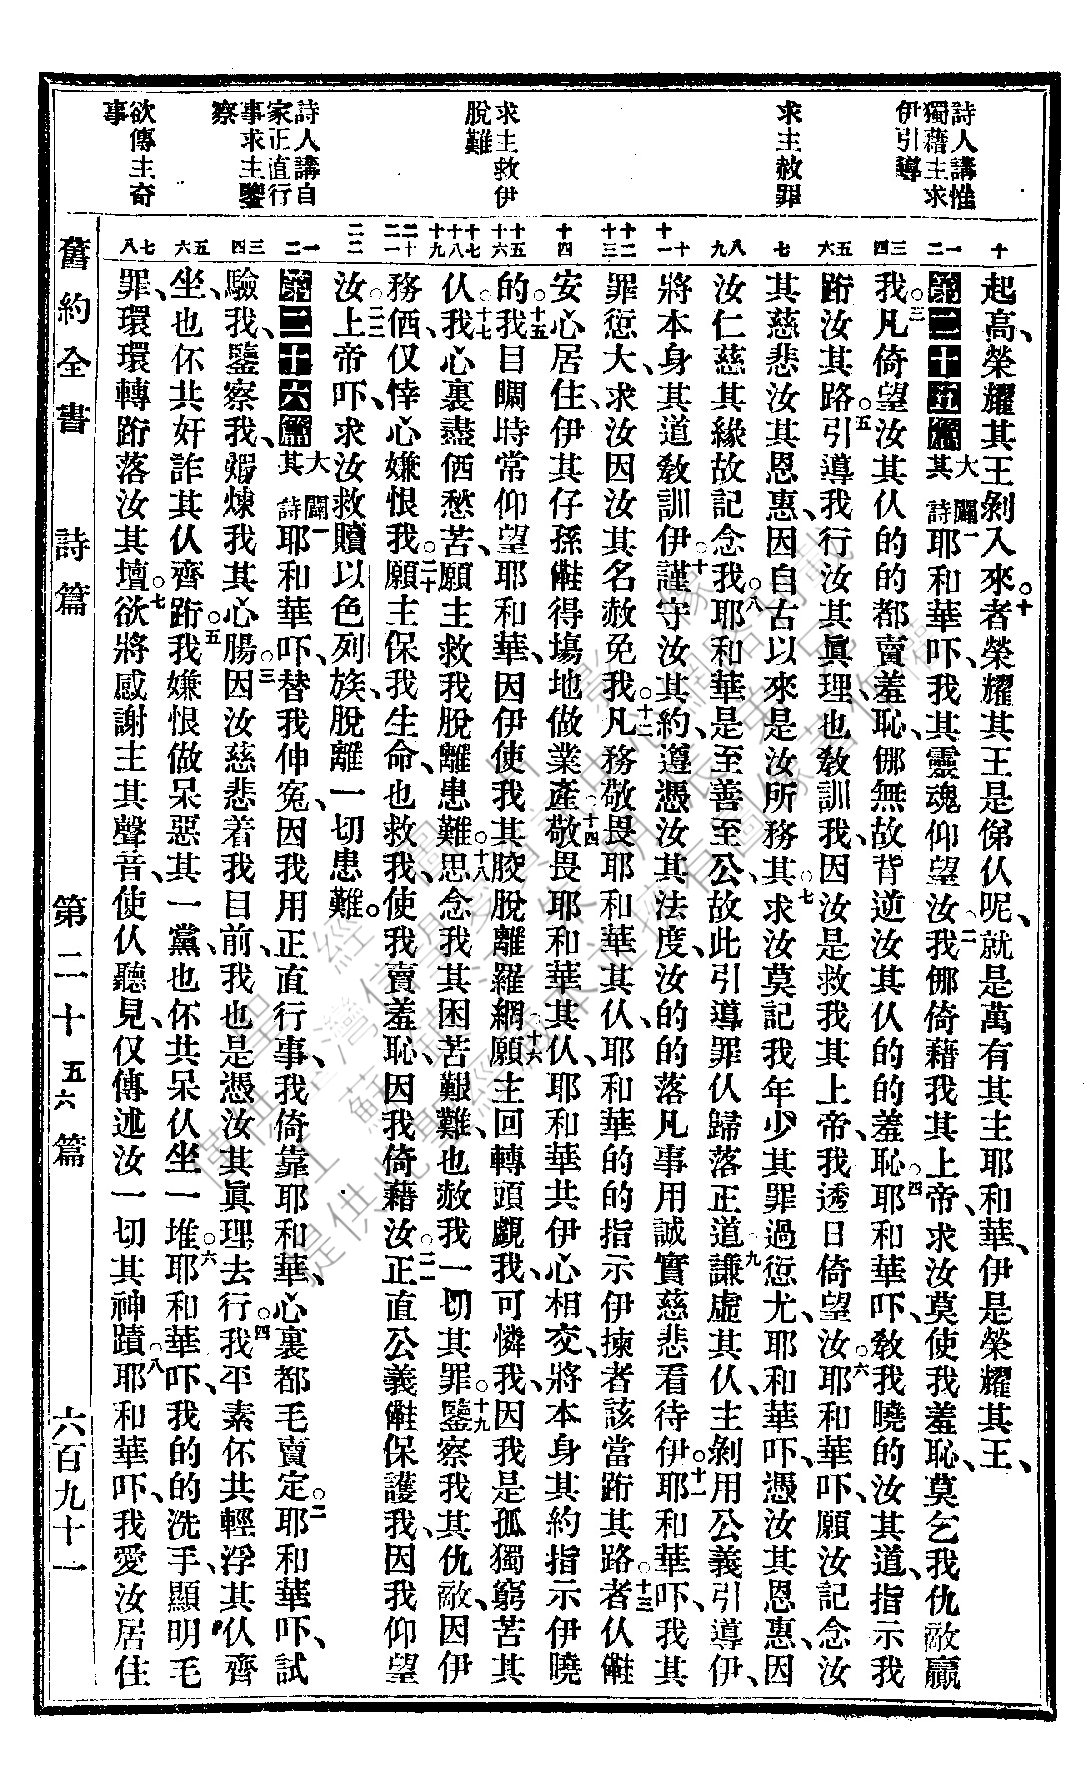 詩人講性
獨藉主求
伊引導
求主赦罪
求主救伊
脫難
詩人講自
家正直行
事求主鑒
察
欲傳主奇
事
十
一二
三四
五六
七
八九
十十一
十二十三
十四
十五十六
十七十八十九
二十二一
二二
一二
三四
五六
七八
起高、榮耀其王剝入來。十者榮耀其王是俤仈呢、就是萬有其主耶和華、伊是榮耀其王、
第二十五篇 大闢其詩 一耶和華吓、我其靈魂仰望汝、二我倻倚藉我其上帝、求汝莫使我羞恥、莫乞我仇敵贏
我。三凡倚望汝其仈的的都賣羞恥、倻無故背逆汝其仈的的羞恥。四耶和華吓、敎我曉的汝其道、指示我
跻汝其路。五引導我行汝其眞理、也敎訓我、因汝是救我其上帝、我透日倚望汝。六耶和華吓、願汝記念汝
其慈悲汝其恩惠、因自古以來是汝所務其。七求汝莫記我年少其罪過愆尤、耶和華吓、憑汝其恩惠、因
汝仁慈其緣故記念我。八耶和華是至善至公、故此引導罪仈歸落正道、九謙虛其仈、主剝用公義引導伊、
將本身其道敎訓伊。十謹守汝其約、遵憑汝其法度、汝的的落凡事用誠實慈悲看待伊。十一耶和華吓、我其
罪愆大、求汝因汝其名赦免我。十二凡務敬畏耶和華其仈、耶和華的的指示伊揀者該當跻其路。十三者仈雝
安心居住、伊其仔孫雝得塲地做業產。十四敬畏耶和華其仈、耶和華共伊心相交、將本身其約指示伊曉
的。十五我目睭時常仰望耶和華、因伊使我其骹脫離羅網。十六願主回轉頭覷我、可憐我、因我是孤獨窮苦其
仈。十七我心裏盡価愁苦、願主救我脫離患難。十八思念我其困苦艱難、也赦我一切其罪。十九鑒察我其仇敵、因伊
務価仅悻心嫌恨我。二十願主保我生命、也救我、使我賣羞恥、因我倚藉汝。二一正直公義雝保護我、因我仰望
汝。二二上帝吓、求汝救贖以色列族、脫離一切患難。
第二十六篇 大闢其詩 一耶和華吓、替我伸寃、因我用正直行事、我倚靠耶和華、心裏都毛賣定。二耶和華吓、試
驗我、鑒察我、煆煉我其心腸。三因汝慈悲着我目前、我也是憑汝其眞理去行。四我平素伓共輕浮其仈齊
坐、也伓共奸詐其仈齊跻。五我嫌恨做呆惡其一黨、也伓共呆仈坐一堆。六耶和華吓、我的的洗手、顯明毛
罪、環環轉跻落汝其壇。七欲將感謝主其聲音、使仈聽見、仅傳述汝一切其神蹟。八耶和華吓、我愛汝居住
舊約全書 詩篇 第二十五六篇 六百九十一